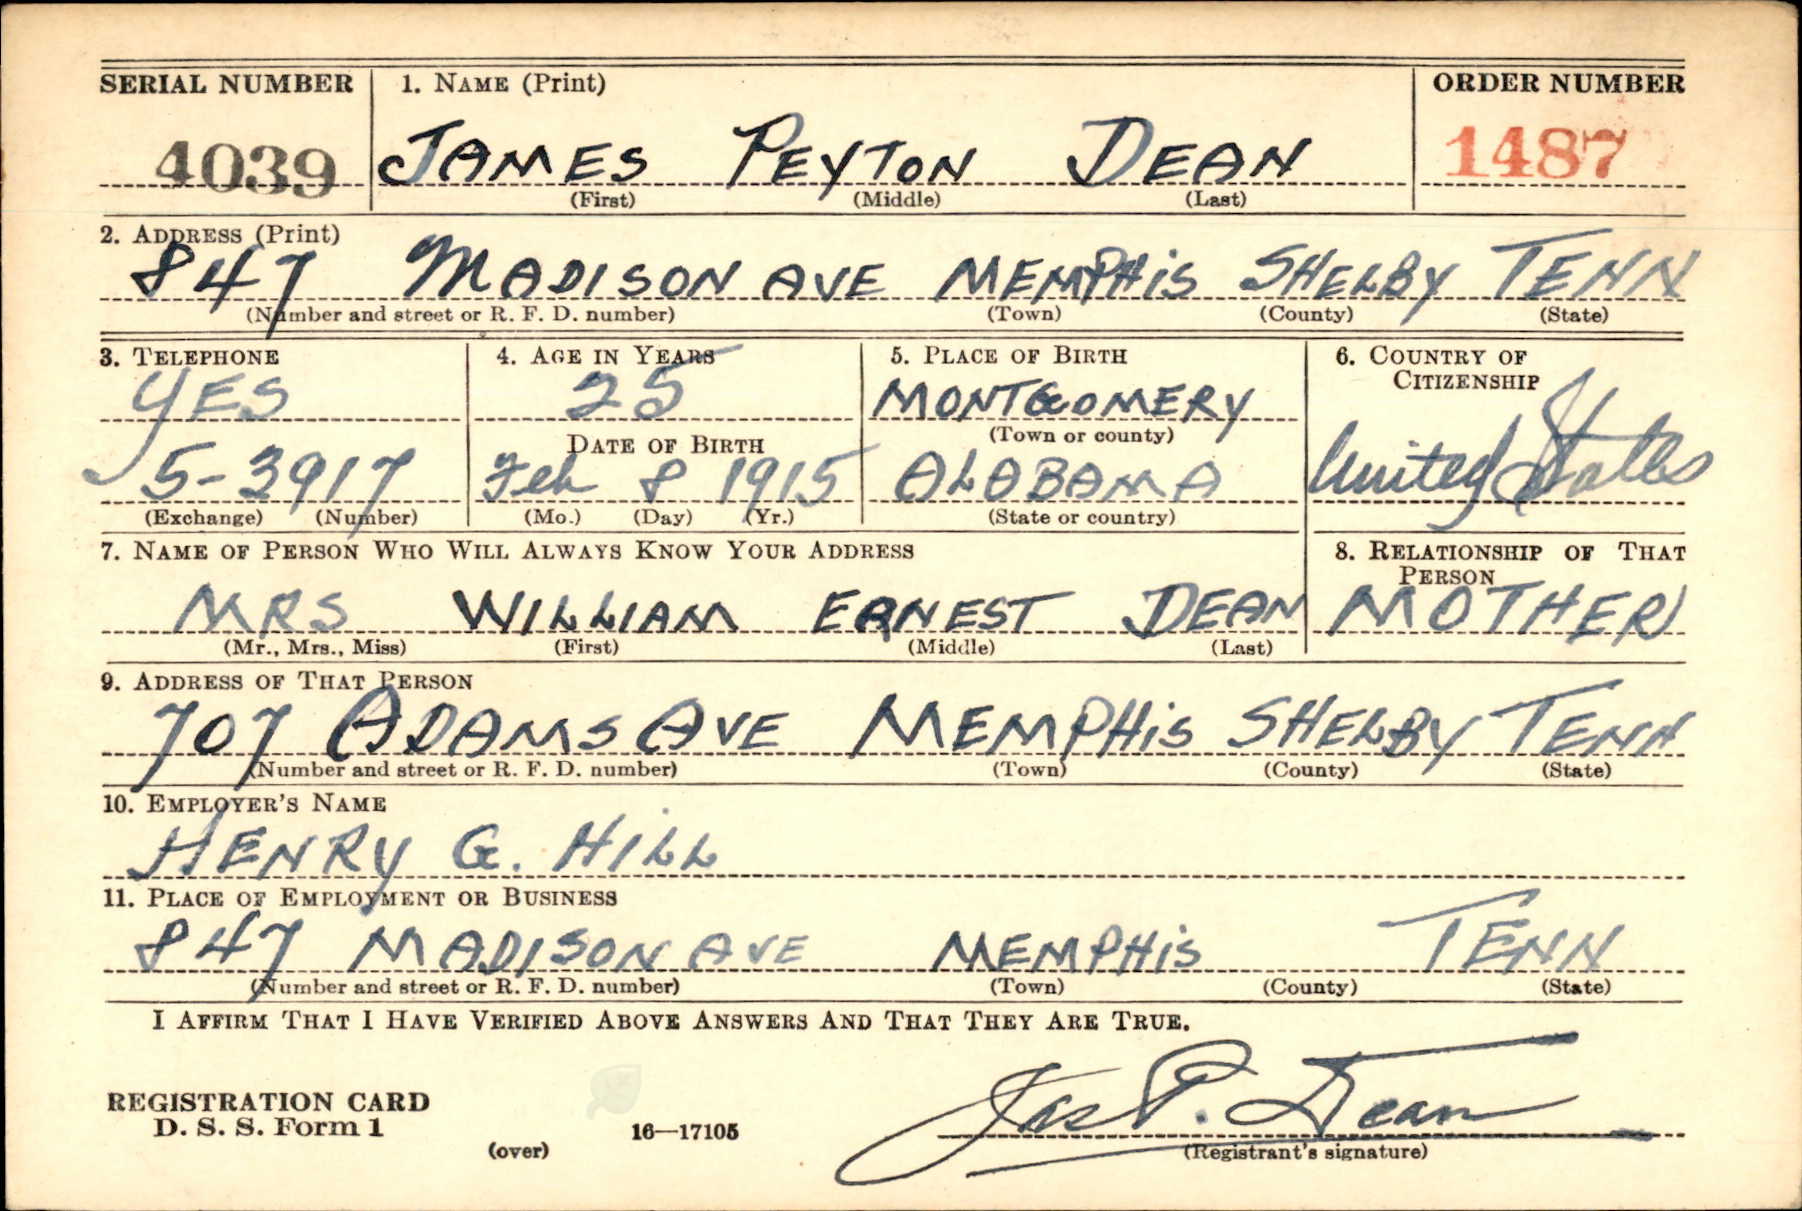 SERIAL NUMBER 1. NAME (Print) ORDER NUMBER
4039 JAMES PEYTON DEAN 1487
(First) (Middle) (Last)
2. ADDRESS (Print)
847 MADISON AVE MEMPHIS SHELBY TENN
(Number and street or R. F. D. number) (Town) (County) (State)
3. TELEPHONE 4. AGE IN YEARS 5. PLACE OF BIRTH 6. COUNTRY OF
CITIZENSHIP
YES 25 MONTGOMERY
(Town or county)
DATE OF BIRTH
5-3917 Feb 8 1915 ALABAMA United States
(Exchange) (Number) (Mo.) (Day) (Yr.) (State or country)
7. NAME OF PERSON WHO WILL ALWAYS KNOW YOUR ADDRESS 8. RELATIONSHIP OF THAT
PERSON
MRS WILLIAM ERNEST DEAN MOTHER
(Mr., Mrs., Miss) (First) (Middle) (Last)
9. ADDRESS OF THAT PERSON
707 ADAMS AVE MEMPHIS SHELBY TENN
(Number and street or R. F. D. number) (Town) (County) (State)
10. EMPLOYER'S NAME
HENRY G. HILL
11. PLACE OF EMPLOYMENT OR BUSINESS
847 MADISON AVE MEMPHIS TENN
(Number and street or R. F. D. number) (Town) (County) (State)
I AFFIRM THAT I HAVE VERIFIED ABOVE ANSWERS AND THAT THEY ARE TRUE.
REGISTRATION CARD
D. S. S. Form 1
(over) 16—17105
Jas P. Dean
(Registrant's signature)